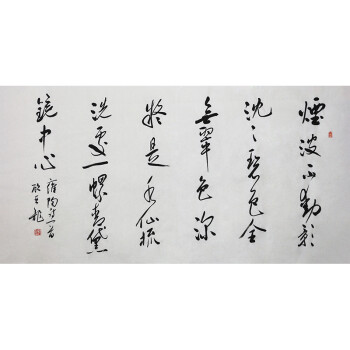 煙波不動影
沈〻碧色全
無翠色深
疑是水仙梳
洗處一螺青黛
鏡中心
雍陶